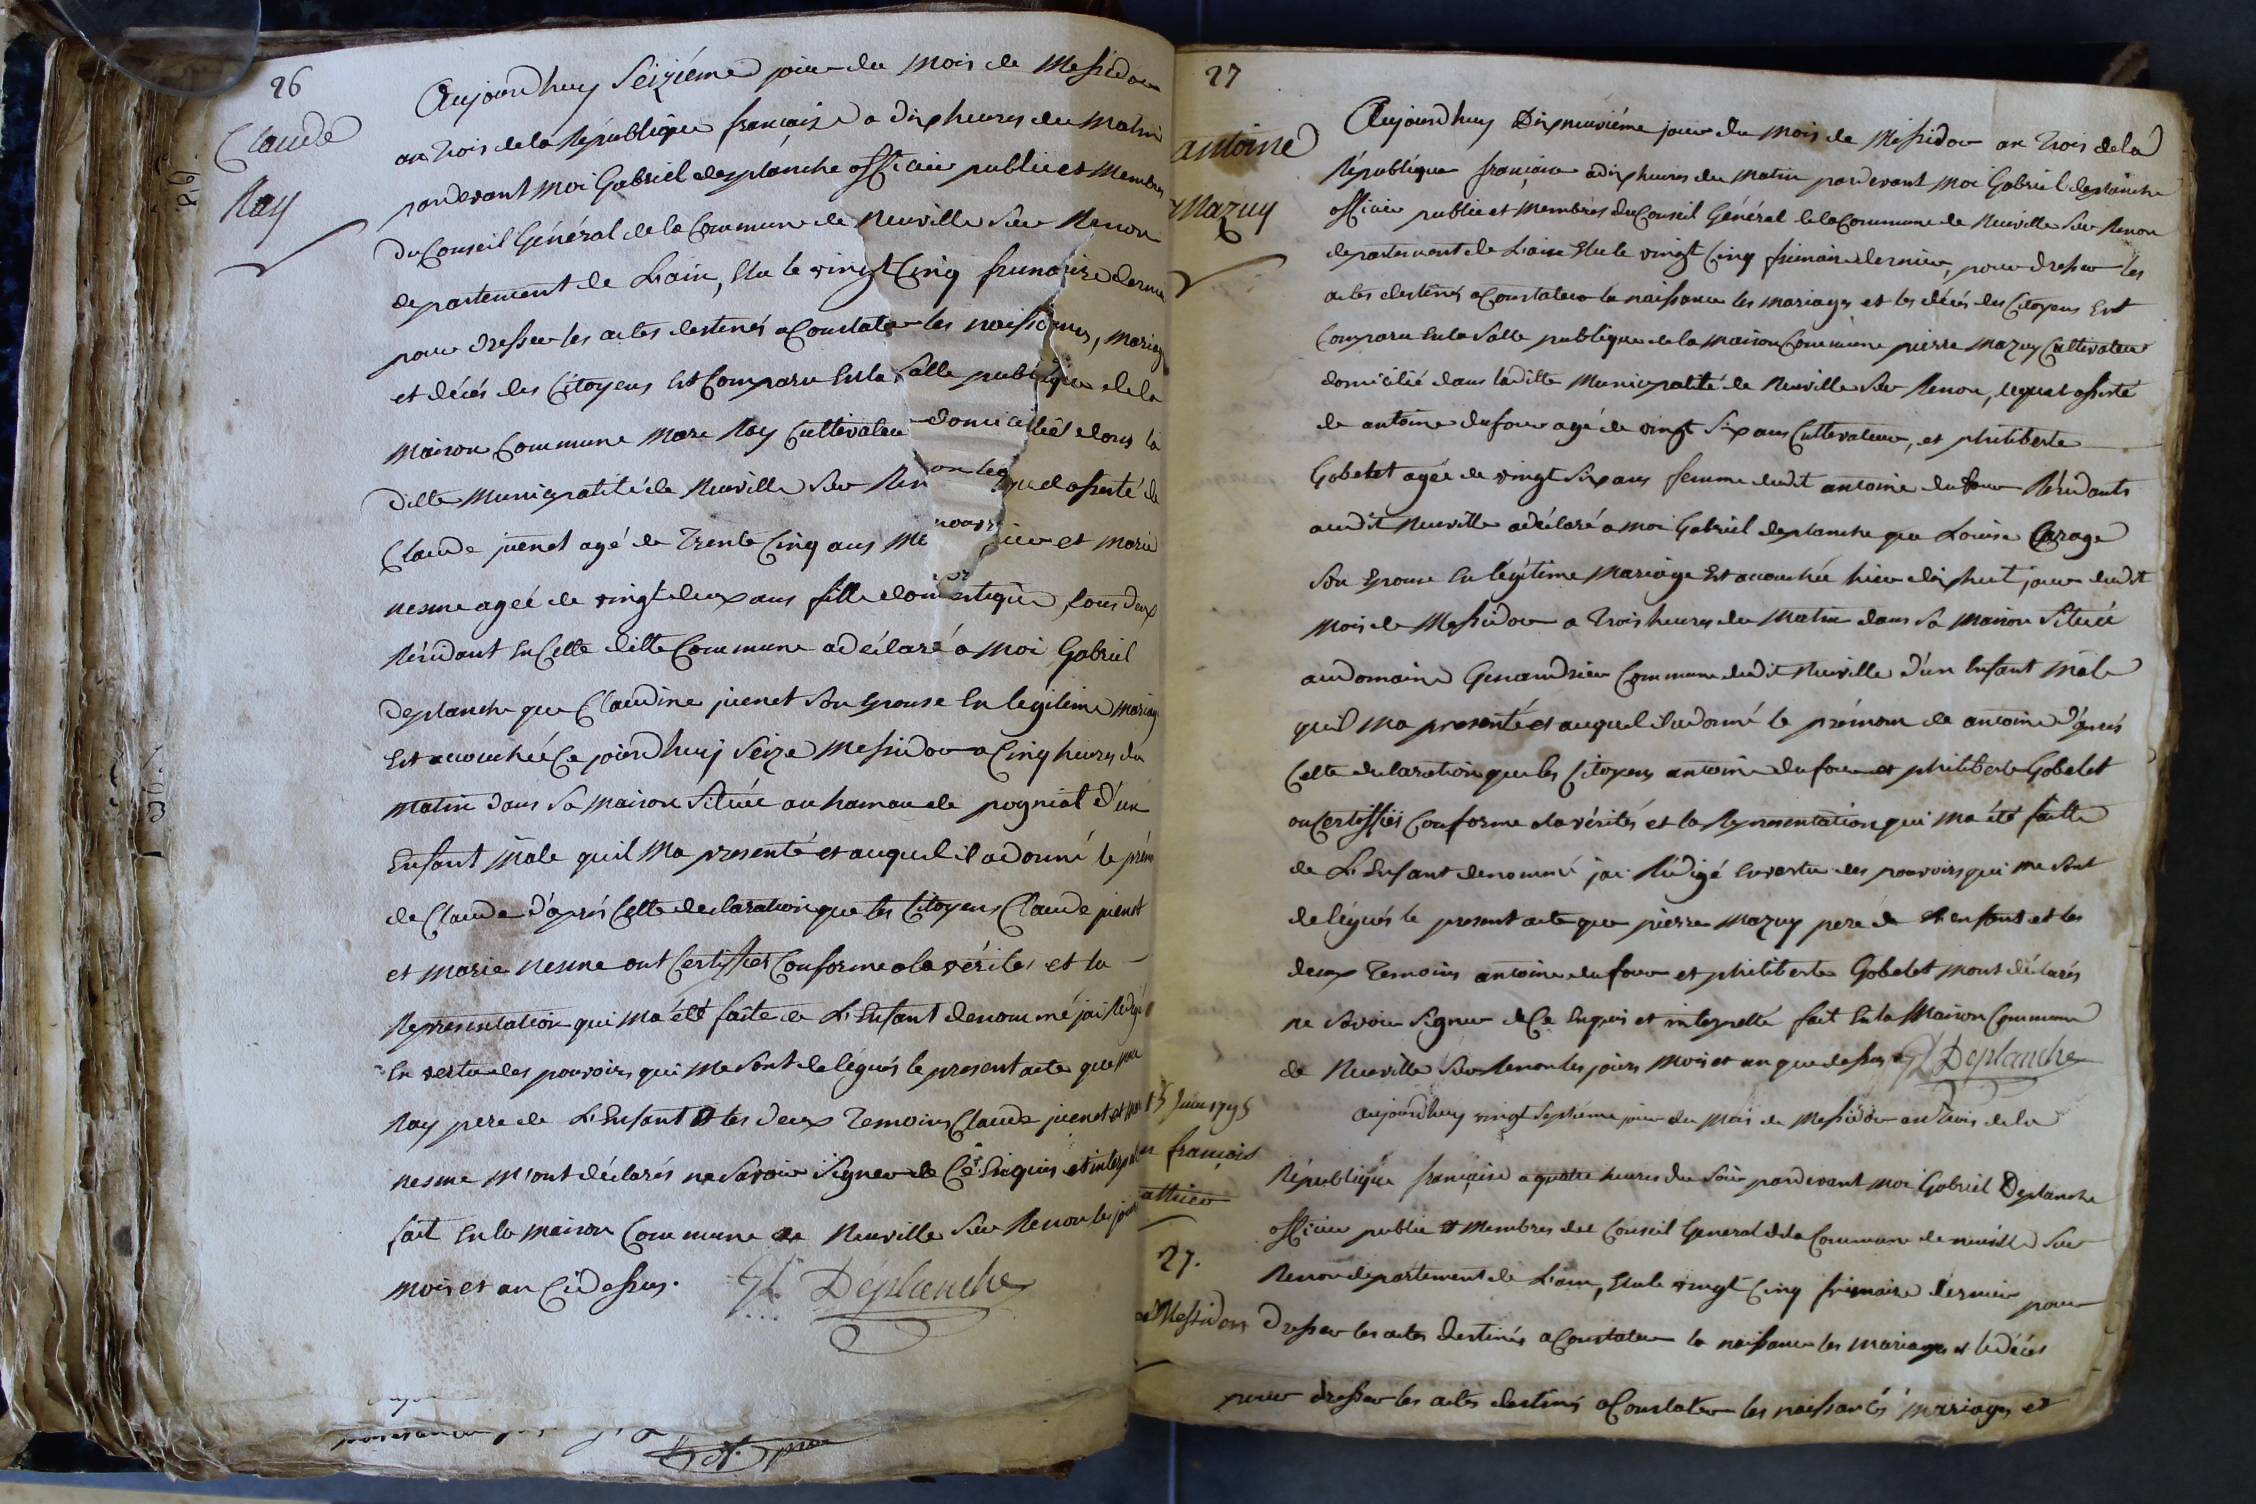 26
Claude
Ray
Aujourdhuy Seiziéme jour du mois de Messidor
an trois de la République française a dix heures du matin
pardevant moi Gabriel deplanche officier public et Membres
du Conseil Général de la Commune de Neuville Sur Renon
departement de L'ain, Elu le vingt Cinq frimaire dernier
pour dresser les actes destinés a Constater les naissances, mariag
et décés des Citoyens Est Comparu En la Salle publique de la
maison Commune Marc Ray Cultivateur domicilié dans la
ditte Municipalité de Neuville Sur Renon lequel assisté de
Claude juenet agé de Trente Cinq ans et marie
nesme agée de vingt deux ans fille domestique, tous deux
Résidant En Cette ditte Commune a déclaré a Moi Gabriel
deplanche que Claudine juenet Son Epouse En legitime mariag
Est accouchée Ce jourdhuy Seize Messidor a Cinq heures du
matin dans Sa maison Située au hameau de pogniat d'un
Enfant Mâle quil Ma presenté et auquel il a donné le prén
de Claude d'aprés Cette declaration que les Citoyens Claude juenet
et marie nesme ont Certiffiés Conforme a la vérités et la
Representation qui Ma été faite de L'Enfant denommé jai Redigé
En vertu des pouvoirs qui Me Sont delégués le present acte que
Ray pere de L'Enfant et les deux Temoins Claude juenet et
nesme m'ont déclarés ne Savoir Signer de Ce Enquis et interpel
fait En la maison Commune de Neuville Sur Renon les jour
mois et an Cidessus. Gl Deplanche
27
antoine
Mazuy
Aujourdhuy Dixneuviéme jour du mois de Messidor an Trois de la
République française a dix heures du matin pardevant Moi Gabriel deplanche
officier public et Membres du Conseil Général de la Commune de Neuville Sur Renon
departement de L'ain Elu le vingt Cinq frimaire dernier, pour dresser les
actes destinés a Constater la naissance les mariages et les décés des Citoyens Est
Comparu En la Salle publique de la maison Commune pierre mazuy Cultivateur
domicilié dans laditte Municipalité de Neuville Sur Renon, lequel assisté
de antoine dufour agé de vingt Six ans Cultivateur, et philiberte
Gobelet agée de vingt Six ans femme dudit antoine dufour Résidants
audit Neuville a déclaré a moi Gabriel deplanche que Louise Carage
Son Epouse En légitime Mariage Est accouchée hier dixhuit jour dudit
mois de Messidor a Trois heures du Matin dans Sa maison Située
au domaine Commune dudit Neuville d'un Enfant Mâle
quil Ma presenté et auquel il a donné le prénom de antoine d'aprés
Cette declaration que les Citoyens antoine dufour et philiberte Gobelet
on Certiffiés Conforme a la vérités et la Representation qui Ma été faitte
de L'Enfant denommé jai Rédigé En vertu des pouvoirs qui me Sont
delégués le present acte que pierre mazuy pere de enfant et les
deux Temoins antoine dufour et philiberte Gobelet mont déclarés
ne Savoir Signer de Ce Enquis et interpellé fait En la Maison Commune
de Neuville Sur Renon les jours Mois et an que dessus Gl Deplanche
1795
françois
27.
Messidor
aujourdhuy vingt Septiéme jour du Mois de Messidor an trois de la
République française a quatre heures du Soir pardevant Moi Gabriel Deplanche
officier public et Membres du Conseil General de la Commune de neuville Sur
Renon departement de L'ain, Elu le vingt Cinq frimaire dernier pour
Dresser les actes destinés a Constater la naissance les mariages et le décés
pour dresser les actes destinés a Constater les naissances mariages et